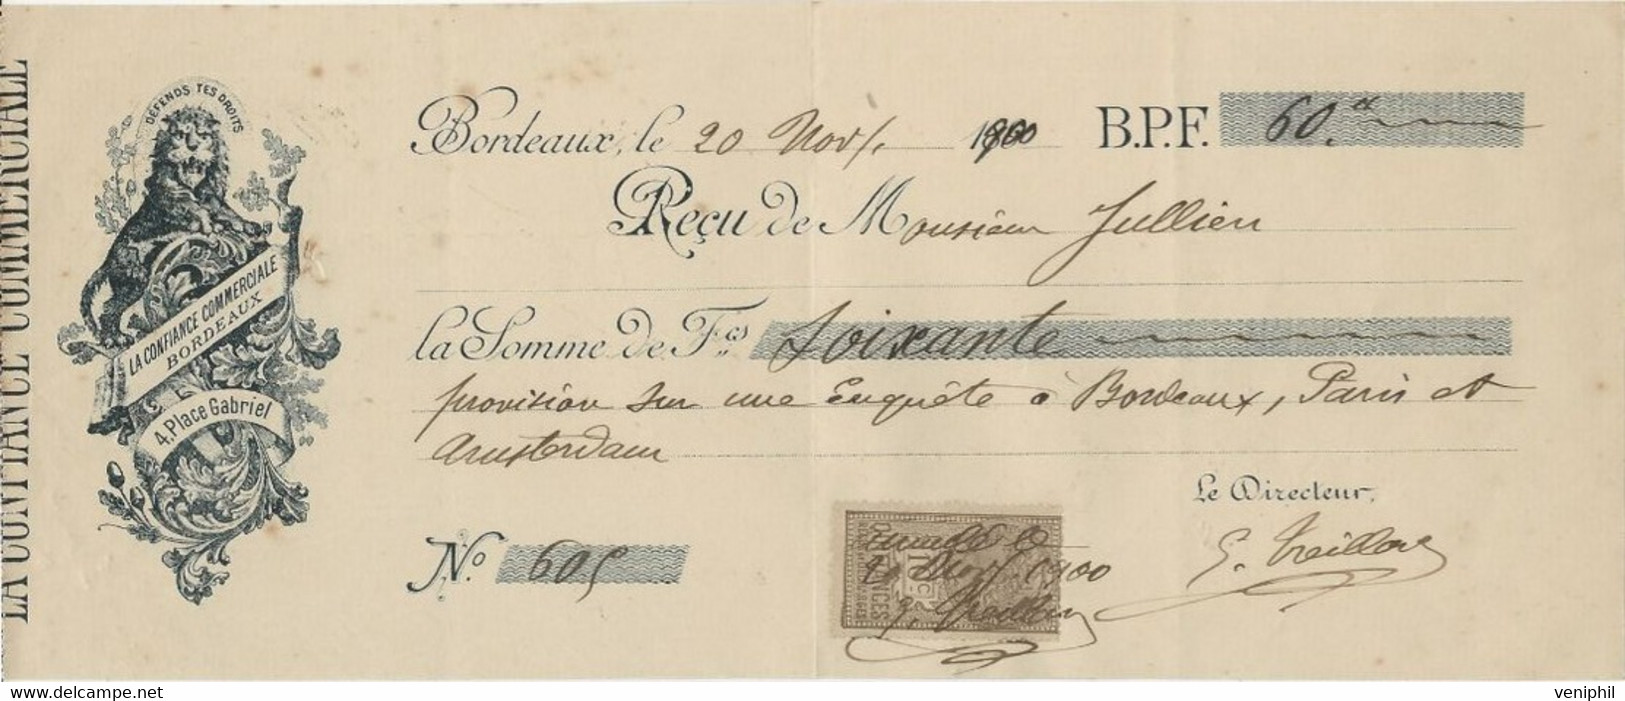 LA CONFIANCE COMMERCIALE
DÉFENDS TES DROITS
LA CONFIANCE COMMERCIALE
BORDEAUX
4, Place Gabriel
Bordeaux, le 20 Nov/. 1900 B.P.F. 60.
Reçu de Monsieur Jullien
la Somme de Fcs Soixante
provision sur une Enquête à Bordeaux, Paris et
Amsterdam
Le Directeur,
No. 605
QUITTANCES
10 C
1900
veniphil